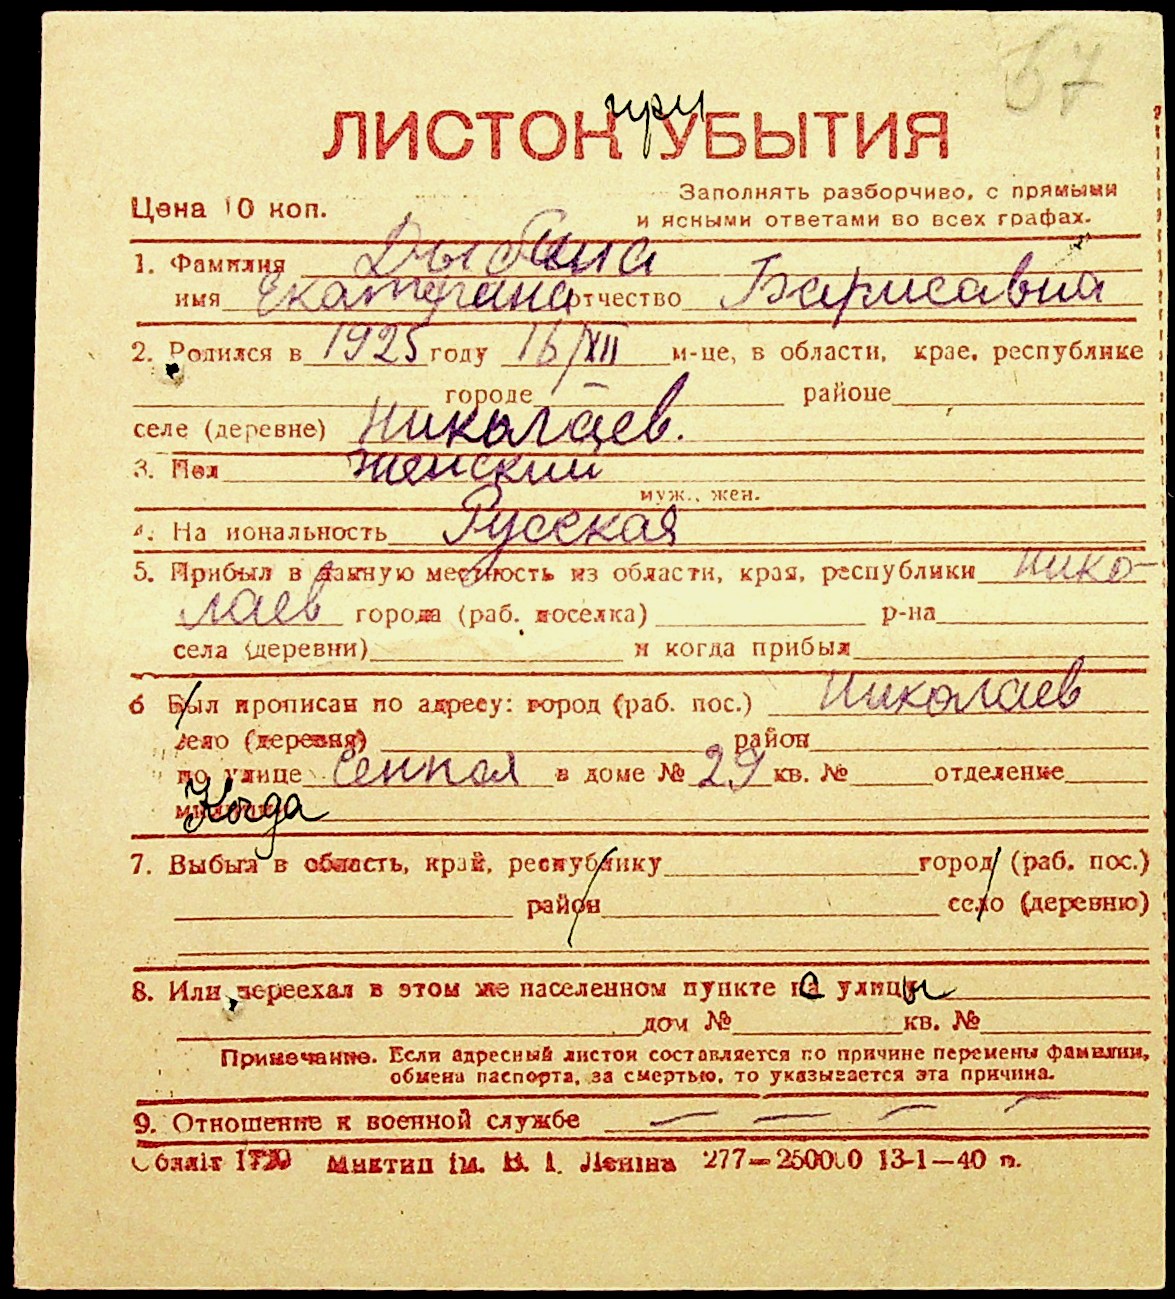 67
ЛИСТОК при УБЫТИЯ
Цена 10 коп.
Заполнять разборчиво, с прямыми
и ясными ответами во всех графах.
1. Фамилия Дыбина
имя Екатерина отчество Барисавна
2. Родился в 1925 году 16/XII м-це, в области, крае, республике
городе районе
селе (деревне) Николаев.
3. Пол женский
муж., жен.
4. Национальность Русская
5. Прибыл в данную местность из области, края, республики Нико-
лаев города (раб. поселка) р-на
села (деревни) и когда прибыл
6 Был прописан по адресу: город (раб. пос.) Николаев
село (деревня) район
по улице Сенная в доме № 29 кв. № отделение
милиции Когда
7. Выбыл в область, край, республику город (раб. пос.)
район село (деревню)
8. Или переехал в этом же населенном пункте с улицы
дом № кв. №
Примечание. Если адресный листок составляется по причине перемены фамилии,
обмена паспорта, за смертью, то указывается эта причина.
9. Отношение к военной службе — — — —
Обллiт Миктип iм. В. I. Ленiна 277—250000 13-1—40 п.